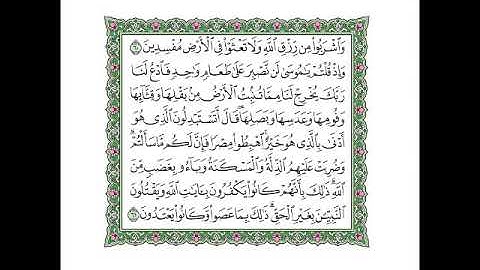 وَٱشْرَبُوا۟ مِن رِّزْقِ ٱللَّهِ وَلَا تَعْثَوْا۟ فِى ٱلْأَرْضِ مُفْسِدِينَ ٦٠
وَإِذْ قُلْتُمْ يَـٰمُوسَىٰ لَن نَّصْبِرَ عَلَىٰ طَعَامٍ وَٰحِدٍ فَٱدْعُ لَنَا
رَبَّكَ يُخْرِجْ لَنَا مِمَّا تُنۢبِتُ ٱلْأَرْضُ مِنۢ بَقْلِهَا وَقِثَّآئِهَا
وَفُومِهَا وَعَدَسِهَا وَبَصَلِهَا ۖ قَالَ أَتَسْتَبْدِلُونَ ٱلَّذِى هُوَ
أَدْنَىٰ بِٱلَّذِى هُوَ خَيْرٌ ۚ ٱهْبِطُوا۟ مِصْرًا فَإِنَّ لَكُم مَّا سَأَلْتُمْ ۗ
وَضُرِبَتْ عَلَيْهِمُ ٱلذِّلَّةُ وَٱلْمَسْكَنَةُ وَبَآءُو بِغَضَبٍ مِّنَ
ٱللَّهِ ۗ ذَٰلِكَ بِأَنَّهُمْ كَانُوا۟ يَكْفُرُونَ بِـَٔايَـٰتِ ٱللَّهِ وَيَقْتُلُونَ
ٱلنَّبِيِّـۧنَ بِغَيْرِ ٱلْحَقِّ ۗ ذَٰلِكَ بِمَا عَصَوا۟ وَّكَانُوا۟ يَعْتَدُونَ ٦١